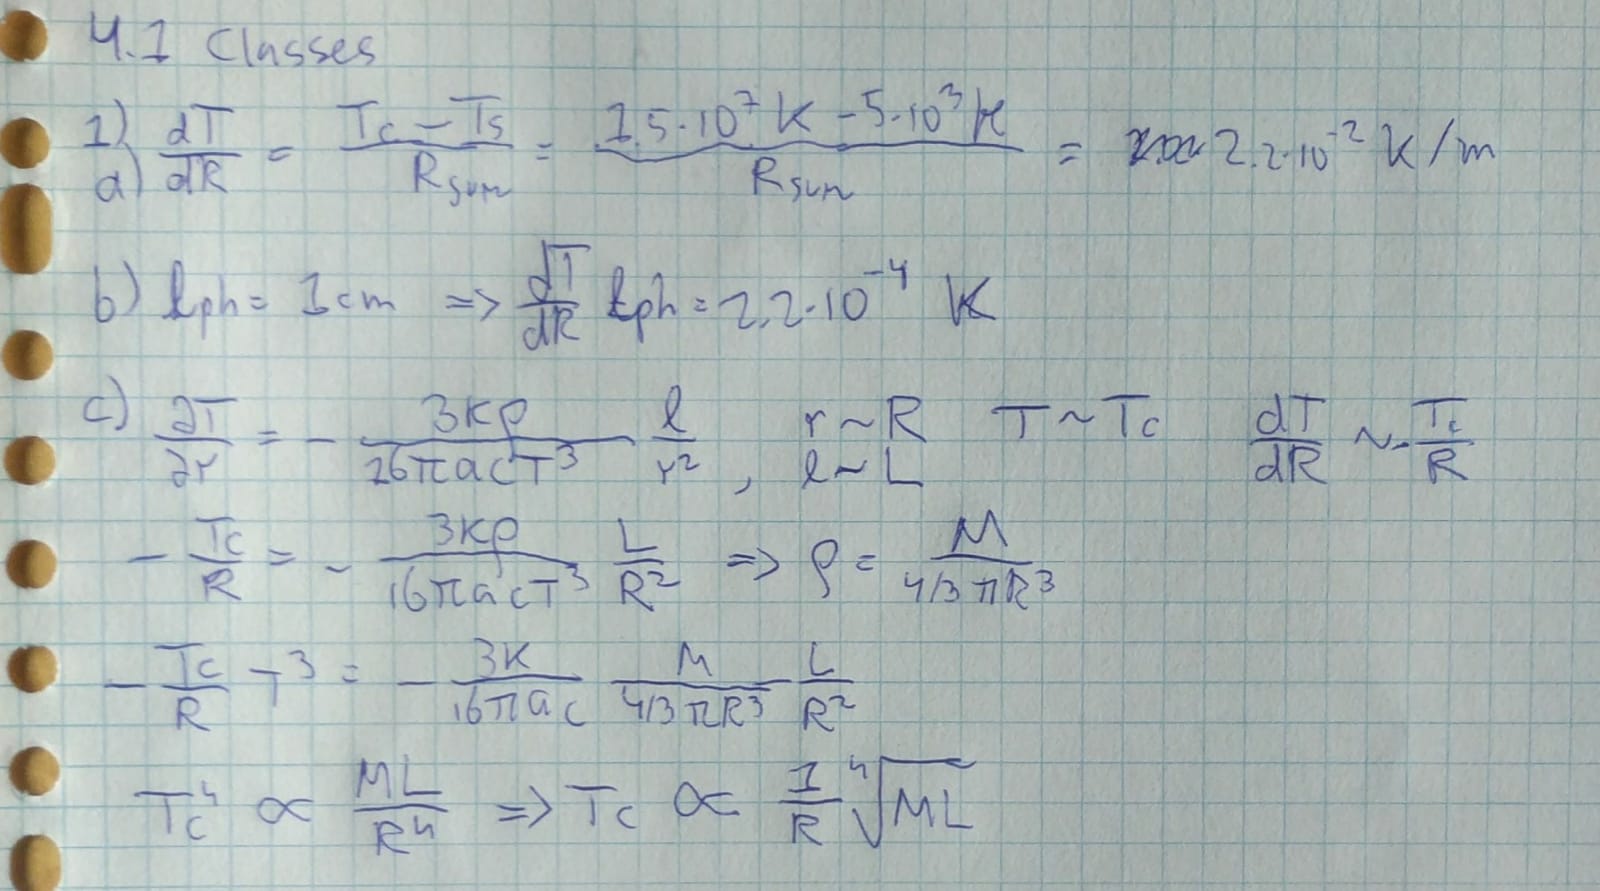 4.1 Classes
1) a) dT/dR = (Tc - Ts)/R_sun = (1.5·10^7 K - 5·10^3 K)/R_sun = 2.2·10^-2 K/m
b) l_ph = 1 cm => dT/dR l_ph = 2.2·10^-4 K
c) ∂T/∂r = - 3κρ/(16πacT^3) l/r^2 , r ~ R l ~ L T ~ Tc dT/dR ~ - Tc/R
- Tc/R = - 3κρ/(16πacT^3) L/R^2 => ρ = M/(4/3 πR^3)
- Tc/R T^3 = - 3κ/(16πac) M/(4/3 πR^3) L/R^2
Tc^4 ∝ ML/R^4 => Tc ∝ 1/R ∜(ML)